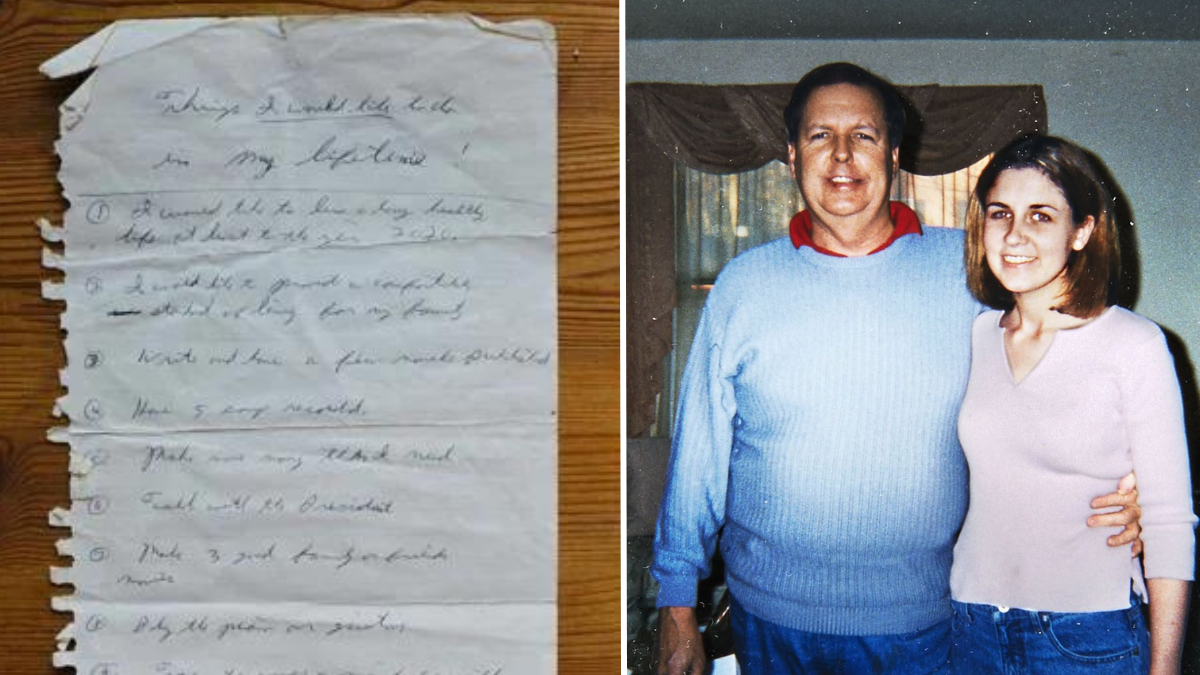 Things I would like to do
in my lifetime!
① I would like to live a long healthy
life at least to the year 2020.
② I would like to provide a comfortable
standard of living for my family
③ Write and have a few novels published
④ Have 5 songs recorded.
⑤ Make
⑥ Talk with the President
⑦ Make 3 good family or
movies
⑧ Play the piano or guitar